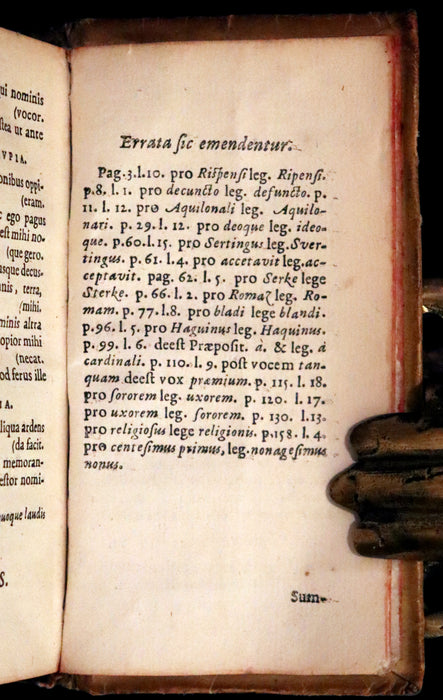 ui nominis
(vocor.
stea ut ante
VPIA.
onibus oppi-
(eram.
c ego pagus
est mihi no-
(que gero.
usque decus-
nis, terra,
(mihi.
minis altra
opior mihi
(necat.
od ferus ille
IA.
aliqua ardens
(da facit.
memoran-
estor nomi-
quoque laudis
S.
Errata ſic emendentur.
Pag.3.l.10. pro Riſpenſi leg. Ripenſi.
p.8. l. 1. pro decuncto leg. defuncto. p.
11. l. 12. pro Aquilonali leg. Aquilo-
nari. p. 29. l. 12. pro deoque leg. ideo-
que. p.60.l.15. pro Sertingus leg.Sver-
tingus. p. 61. l.4. pro accetavit leg.ac-
ceptavit. pag. 62. l. 5. pro Serke lege
Sterke. p. 66. l. 2. pro Romaʒ leg. Ro-
mam. p. 77. l.8. pro bladi lege blandi.
p.96. l. 5. pro Haguinus leg. Haquinus.
p. 99. l. 6. deeſt Præpoſit. à. & leg. à
cardinali. p. 110. l. 9. poſt vocem tan-
quam deeſt vox præmium. p. 115. l. 18.
pro ſororem leg. uxorem. p. 120. l. 17.
pro uxorem leg. ſororem. p. 130. l.13.
pro religioſus lege religionis. p.158. l. 4.
pro centeſimus primus, leg. nonageſimus
nonus.
Sum-